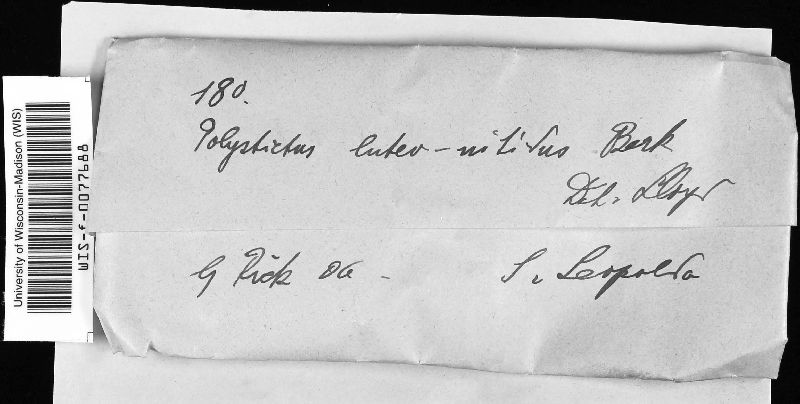 180.
Polystictus luteo-nitidus Berk
Det. Lloyd
J Rick 06 -
S. Leopoldo
University of Wisconsin-Madison (WIS)
WIS-f-0077688